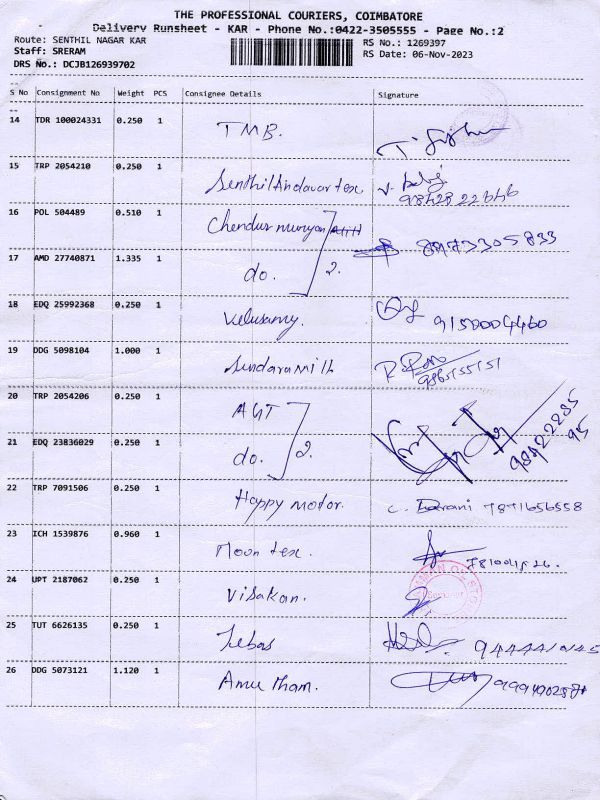 THE PROFESSIONAL COURIERS, COIMBATORE
Delivery Runsheet - KAR - Phone No.:0422-3505555 - Page No.:2
Route: SENTHIL NAGAR KAR
RS No.: 1269397
Staff: SRERAM
RS Date: 06-Nov-2023
DRS No.: DCJB126939702
S No Consignment No Weight PCS Consignee Details Signature
14 TDR 100024331 0.250 1 TMB.
15 TRP 2054210 0.250 1 Senthil Andavar tex
98428 22646
16 POL 504489 0.510 1 Chendur murugan 8973305833
17 AMD 27740871 1.335 1 do. 2.
18 EDQ 25992368 0.250 1 Velusamy. 9150004460
19 DDG 5098104 1.000 1 Sundaram
20 TRP 2054206 0.250 1 AGT
21 EDQ 23836029 0.250 1 do. 2.
22 TRP 7091506 0.250 1 Happy motor. 7871656558
23 ICH 1539876 0.960 1 Moon tex.
24 UPT 2187062 0.250 1 Visakan.
25 TUT 6626135 0.250 1 Jebas
26 DDG 5073121 1.120 1 Amutham.